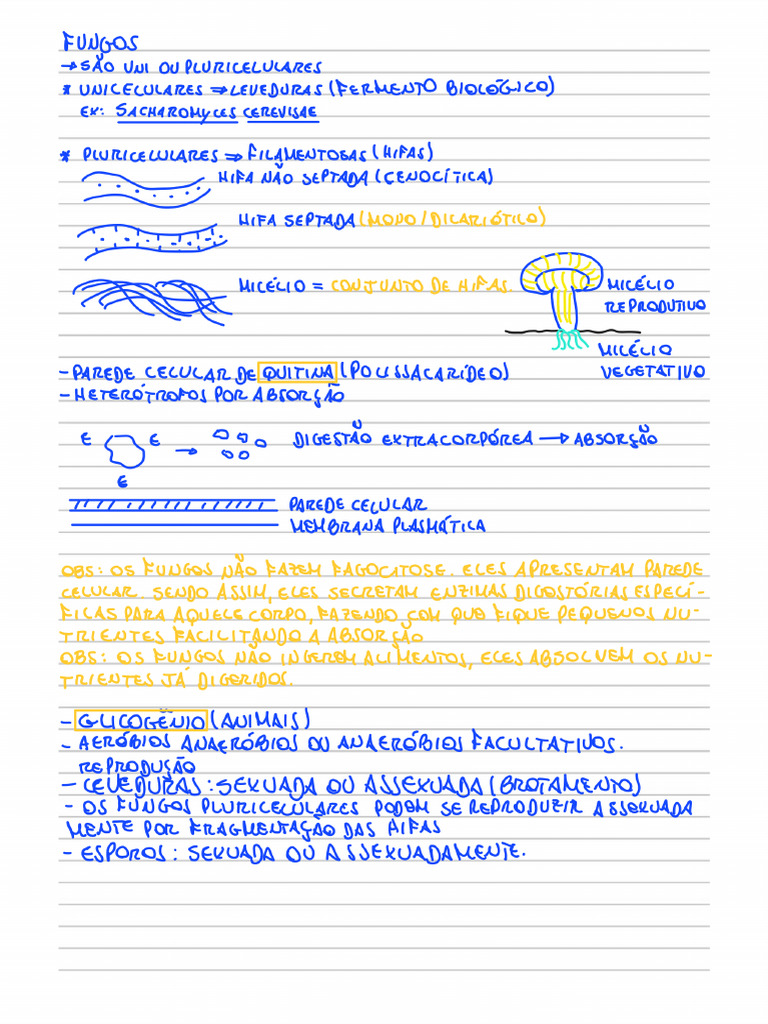 FUNGOS
→ SÃO UNI OU PLURICELULARES
* UNICELULARES ⇒ LEVEDURAS (FERMENTO BIOLÓGICO)
EX: SACHAROMYCES CEREVISAE
* PLURICELULARES ⇒ FILAMENTOSAS (HIFAS)
HIFA NÃO SEPTADA (CENOCÍTICA)
HIFA SEPTADA (MONO/DICARIÓTICO)
MICÉLIO = CONJUNTO DE HIFAS.
MICÉLIO
REPRODUTIVO
MICÉLIO
VEGETATIVO
- PAREDE CELULAR DE QUITINA (POLISSACARÍDEO)
- HETERÓTROFOS POR ABSORÇÃO
E E E
DIGESTÃO EXTRACORPÓREA → ABSORÇÃO
PAREDE CELULAR
MEMBRANA PLASMÁTICA
OBS: OS FUNGOS NÃO FAZEM FAGOCITOSE. ELES APRESENTAM PAREDE
CELULAR. SENDO ASSIM, ELES SECRETAM ENZIMAS DIGESTÓRIAS ESPECÍ-
FICAS PARA AQUELE CORPO, FAZENDO COM QUE FIQUE PEQUENOS NU-
TRIENTES FACILITANDO A ABSORÇÃO
OBS: OS FUNGOS NÃO INGEREM ALIMENTOS, ELES ABSOLVEM OS NU-
TRIENTES JÁ DIGERIDOS.
- GLICOGÊNIO (ANIMAIS)
- AERÓBIOS ANAERÓBIOS OU ANAERÓBIOS FACULTATIVOS.
REPRODUÇÃO
- LEVEDURAS: SEXUADA OU ASSEXUADA (BROTAMENTO)
- OS FUNGOS PLURICELULARES PODEM SE REPRODUZIR ASSEXUADA
MENTE POR FRAGMENTAÇÃO DAS HIFAS
- ESPOROS: SEXUADA OU ASSEXUADAMENTE.